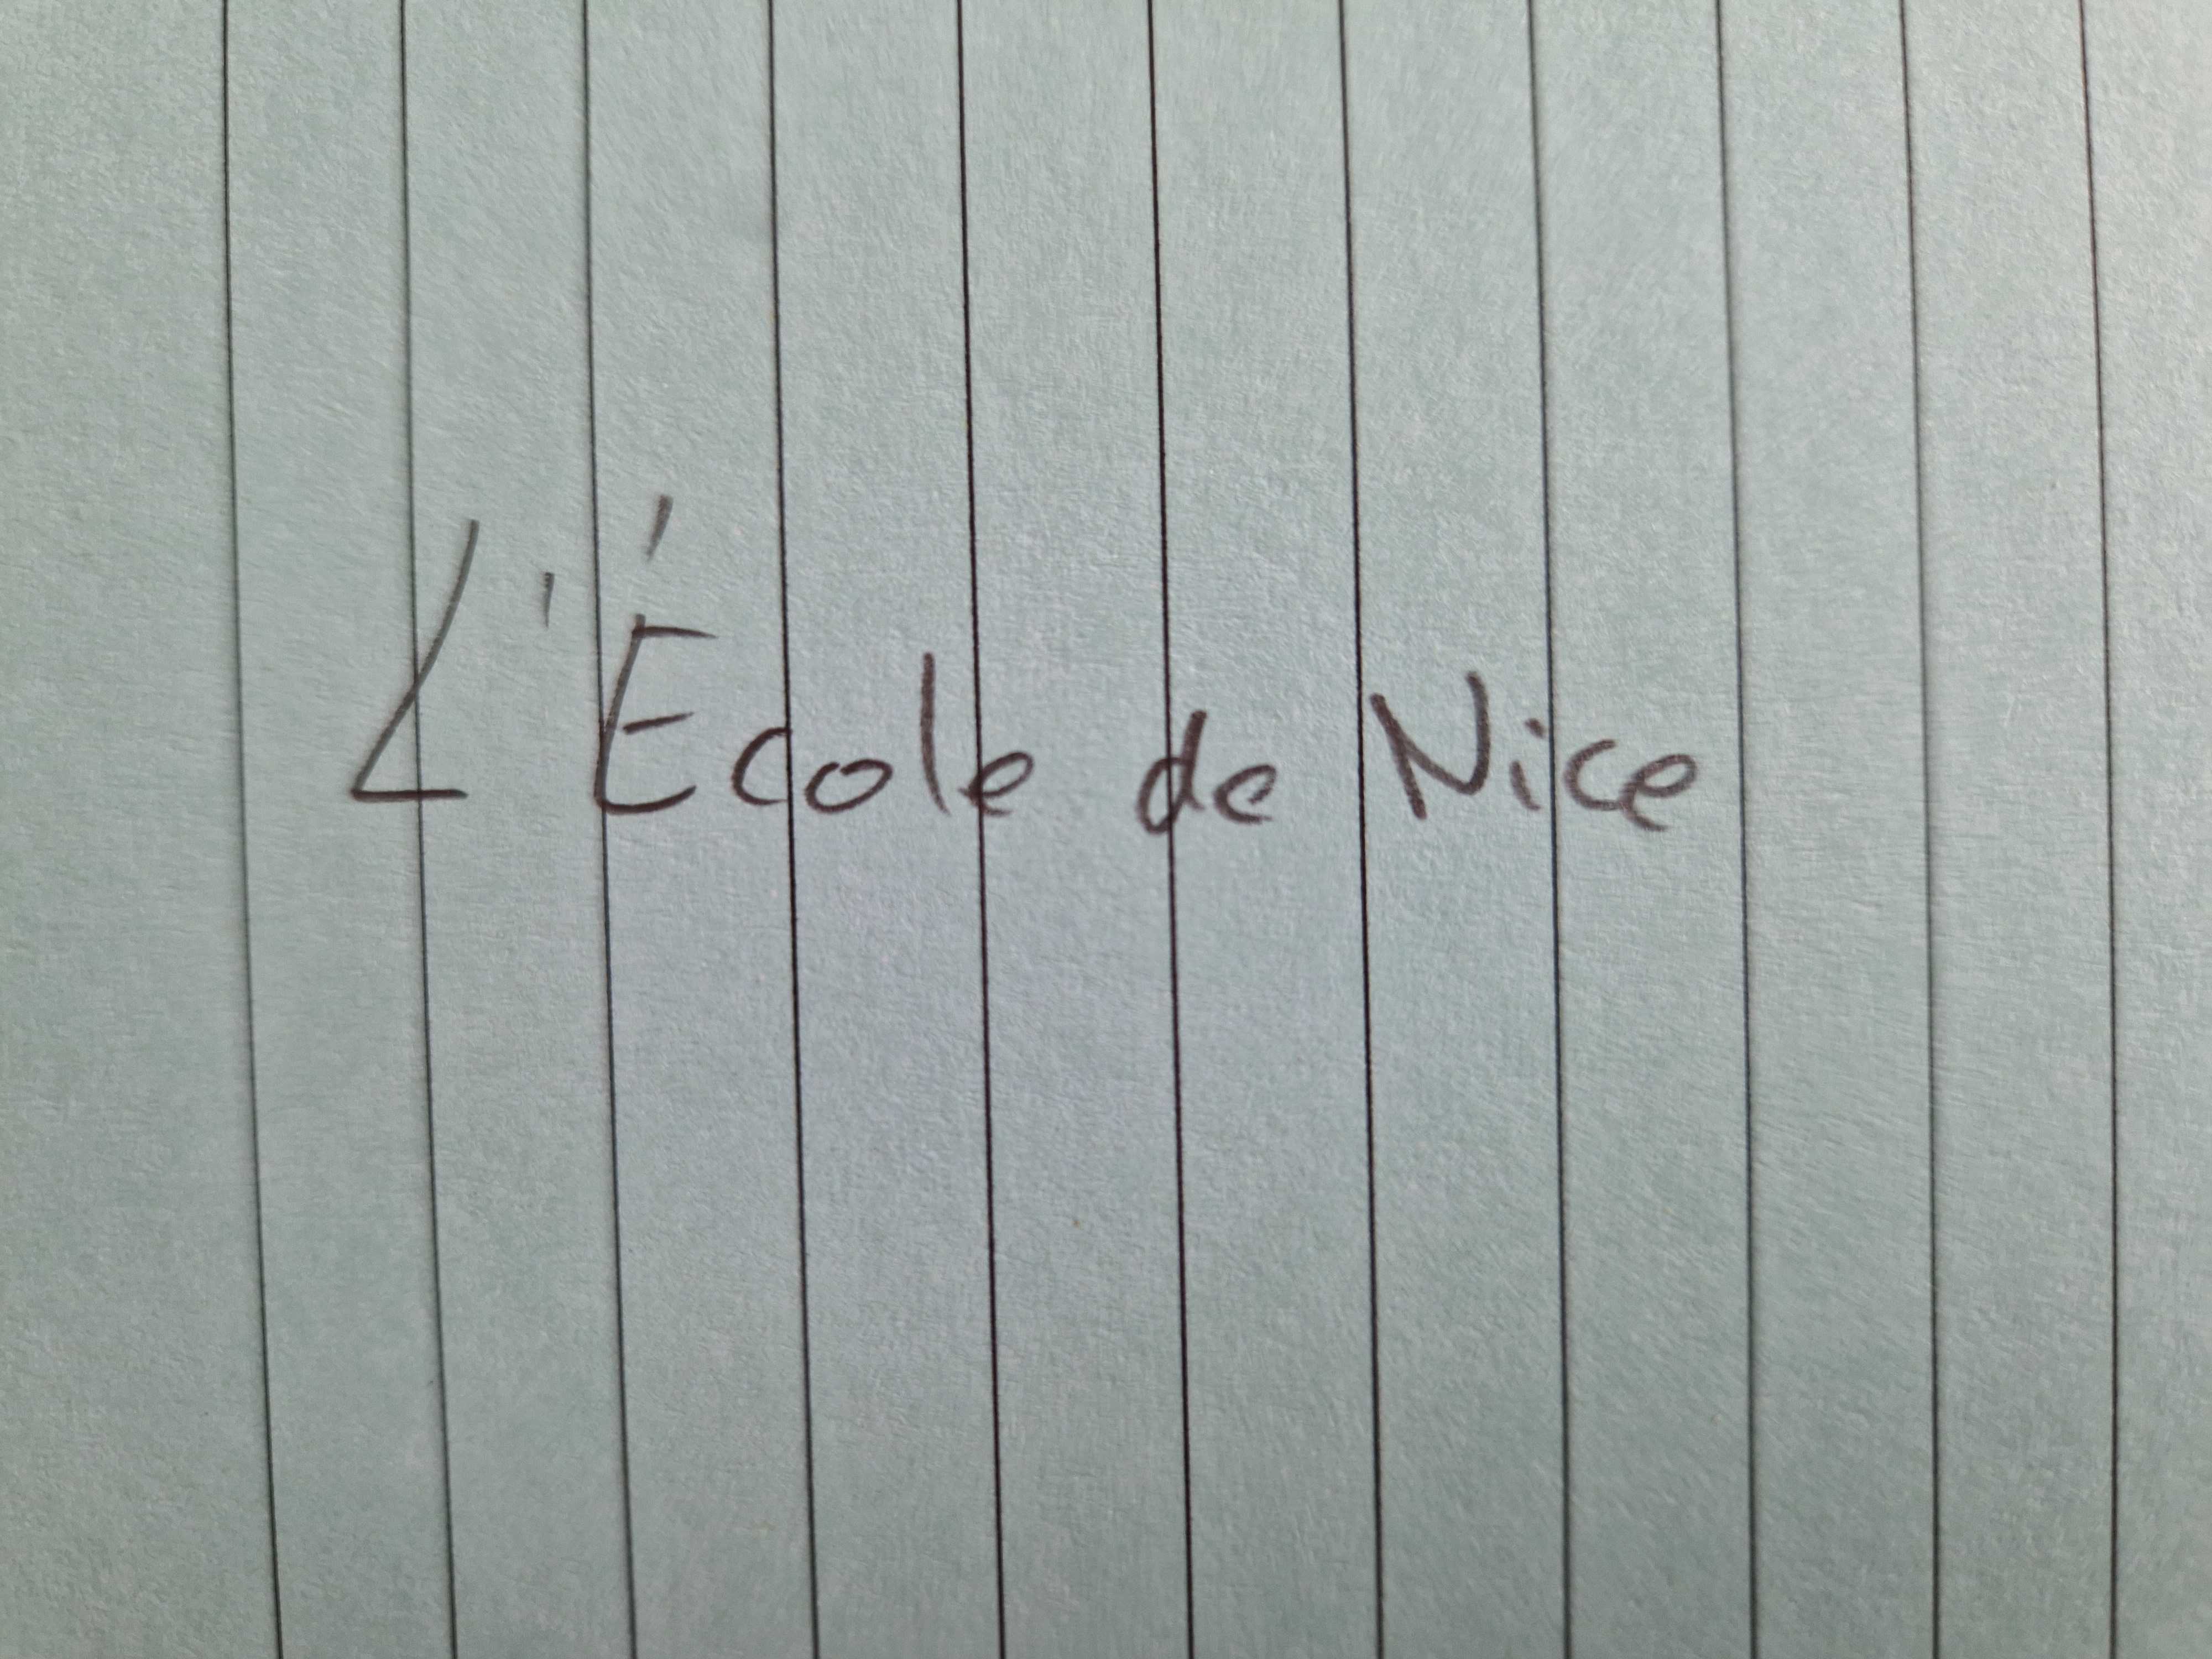 L'École de Nice